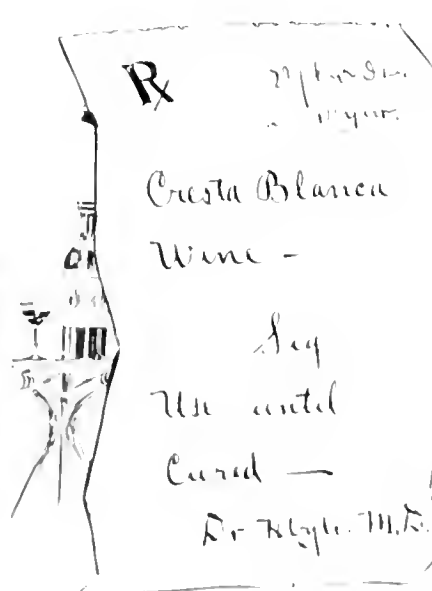 Rx
Cresta Blanca
Wine -
Sig
Use until
Cured —
Dr M.D.